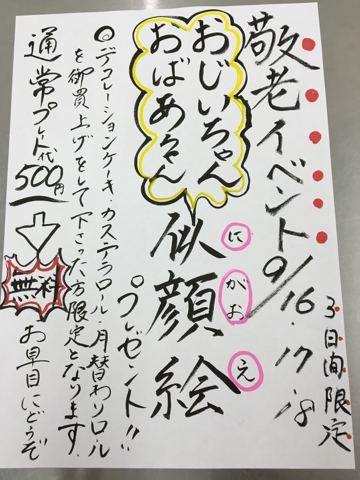 敬老イベント9/16.17.18
3日間限定
おじいちゃん
おばあちゃん
似顔絵
にがおえ
プレゼント!!
◎デコレーションケーキ・カステラロール・月替わりロール
を御買上げをして下さった方限定となります。
通常プレート代500円
無料
お早目にどうぞ